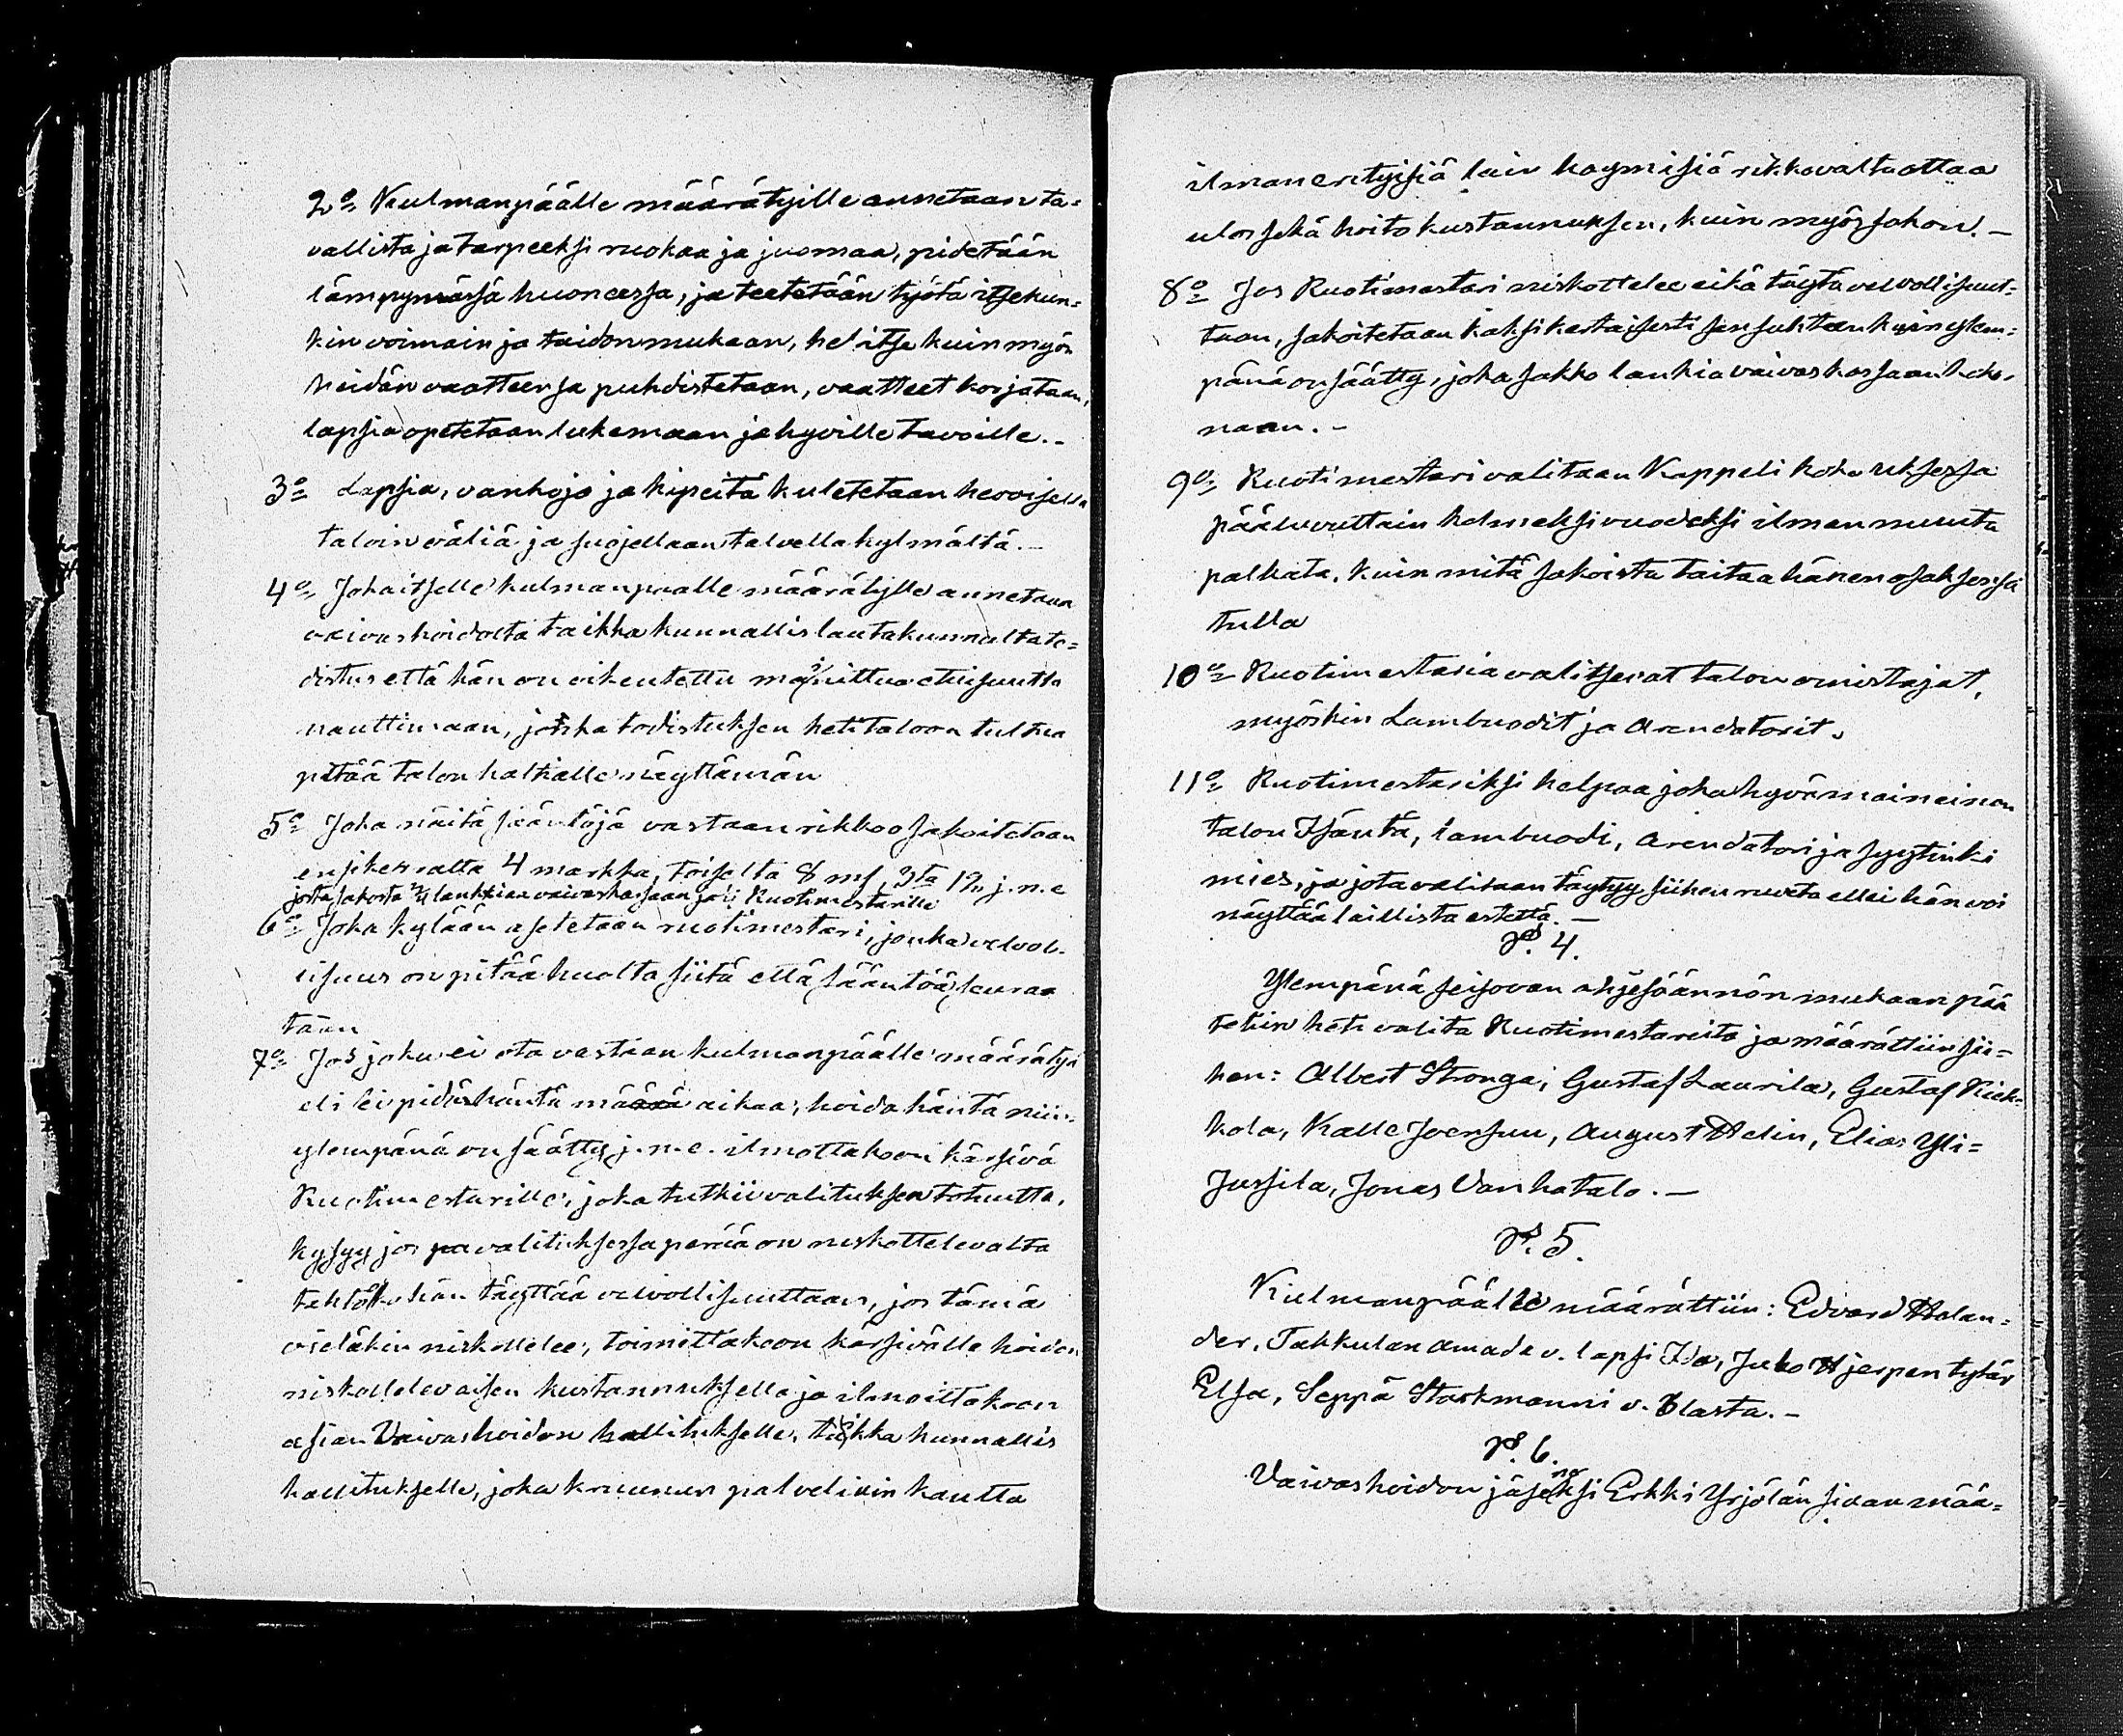 2:o Kulmanpäälle määrätyille annetaan ta=
vallista ja tarpeeksi ruokaa ja juomaa, pidetään
lämpymässä huoneessa, ja teetetään työtä itsekun=
kin voimain ja taidon mukaan, he itse kuin myös
heidän vaatteensa puhdistetaan, vaatteet korjataan,
lapsia opetetaan lukemaan ja hyville tavoille.-
3:o Lapsia, vanhoja ja kipeitä kuletetaan hevoisella
taloin väliä ja suojellaan talvella kylmältä.-
4:o Jokaitselle kulmanpaalle määrätylle annetaan
vaivashoidolta taikka kunnallislautakunnalta to=
distus että hän on oikeutettu mainittua etuisuutta
nauttimaan, jonka todistuksen heti taloon tultua
pitää talon haltialle näyttämän
5:o Joka näitä sääntöjä vastaan rikkoo sakoitetaan
ensikerralta 4 markka, toiselta 8 mk, 3ta 12 j.n.e
josta sakosta 3/4 lankeian vaivaskassaan ja 1/4 Ruotimestarille
6:o Joka kylään asetetaan ruotimestari, jonka velvol-
lisuus on pitää huolta siitä että sääntöä seuraa
taan
7:o Jos joku ei ota vastaan kulmanpäälle määrätyä
eli ei pidä häntä määrä aikaa, hoida häntä niin
ylempänä on säätty j.n.e. ilmottakoon kärsivä
Ruotimestarille, joka tutkii valituksen totuutta,
kysyy jos valituksessa perää on niskottelevalta
tahtooko hän täyttää velvollisuuttaan, jos tämä
vieläkin niskottelee, toimittakoon kärsivälle hoidon
niskottelevaisen kustannuksella ja ilmoittakoon
asian Vaivashoidon hallitukselle, taikka kunnallis
hallitukselle, joka kruunun palvelian kautta
ilman erityisiä lain haymisiä rikkovalta ottaa
ulos sekä hoito kustannuksen, kuin myös sakon.-
8:o Jos Ruotimestari niskottelee eikä täytä velvollisuut=
taan, sakoitetaan kaksikertaisesti sen suhteen kuin ylem=
pänä on säätty, joka sakko lankia vaivaskassaan koko-
naan.-
9:o Ruotimestari valitaan Kappeli kokouksessa
pääluvuttain kolmeksi vuodeksi ilman muuta
palkata, kuin mitä sakoista taitaa hänen osaksensa
tulla
10:o Ruotimestaria valitsevat talon omistajat,
myöskin Lambuodit ja Arendatorit.
11:o Ruotimestariksi kelpaa joka hyvämaineinen
talon Isäntä, lambuodi, arendatori ja syytinki
mies, ja jota valitaan täytyy siihen ruveta ellei hän voi
näyttää laillista estettä.-
§. 4.
Ylempänä seisovan ohjesäännön mukaan pää
tettiin heti valita Ruotimestareita ja määrättiin sii=
hen: Albert Stronga, Gustaf Laurila, Gustaf Kiek-
kola, Kalle Joensuu, August Helin, Elias Yli=
Jussila, Jonas Vanhatalo.-
§. 5.
Kulmanpäälle määrättiin: Edvard Helan=
der, Takkulan Amada v. lapsi Ida, Juho Hjerpen tytär
Elsa, Seppä Starkmanni v. lasta.-
§. 6.
Vaivashoidon jäseneksi Erkki Yrjölän siaan mää=